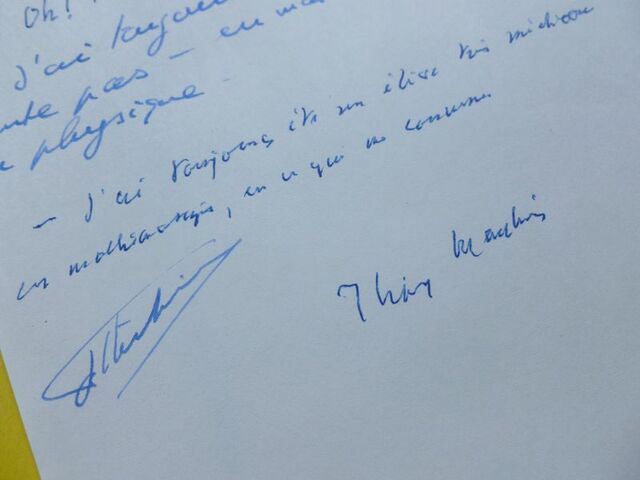 Oh!
J'ai toujours
pas – en
physique.
– J'ai toujours été un élève très médiocre
en mathématiques, en ce qui me concerne.